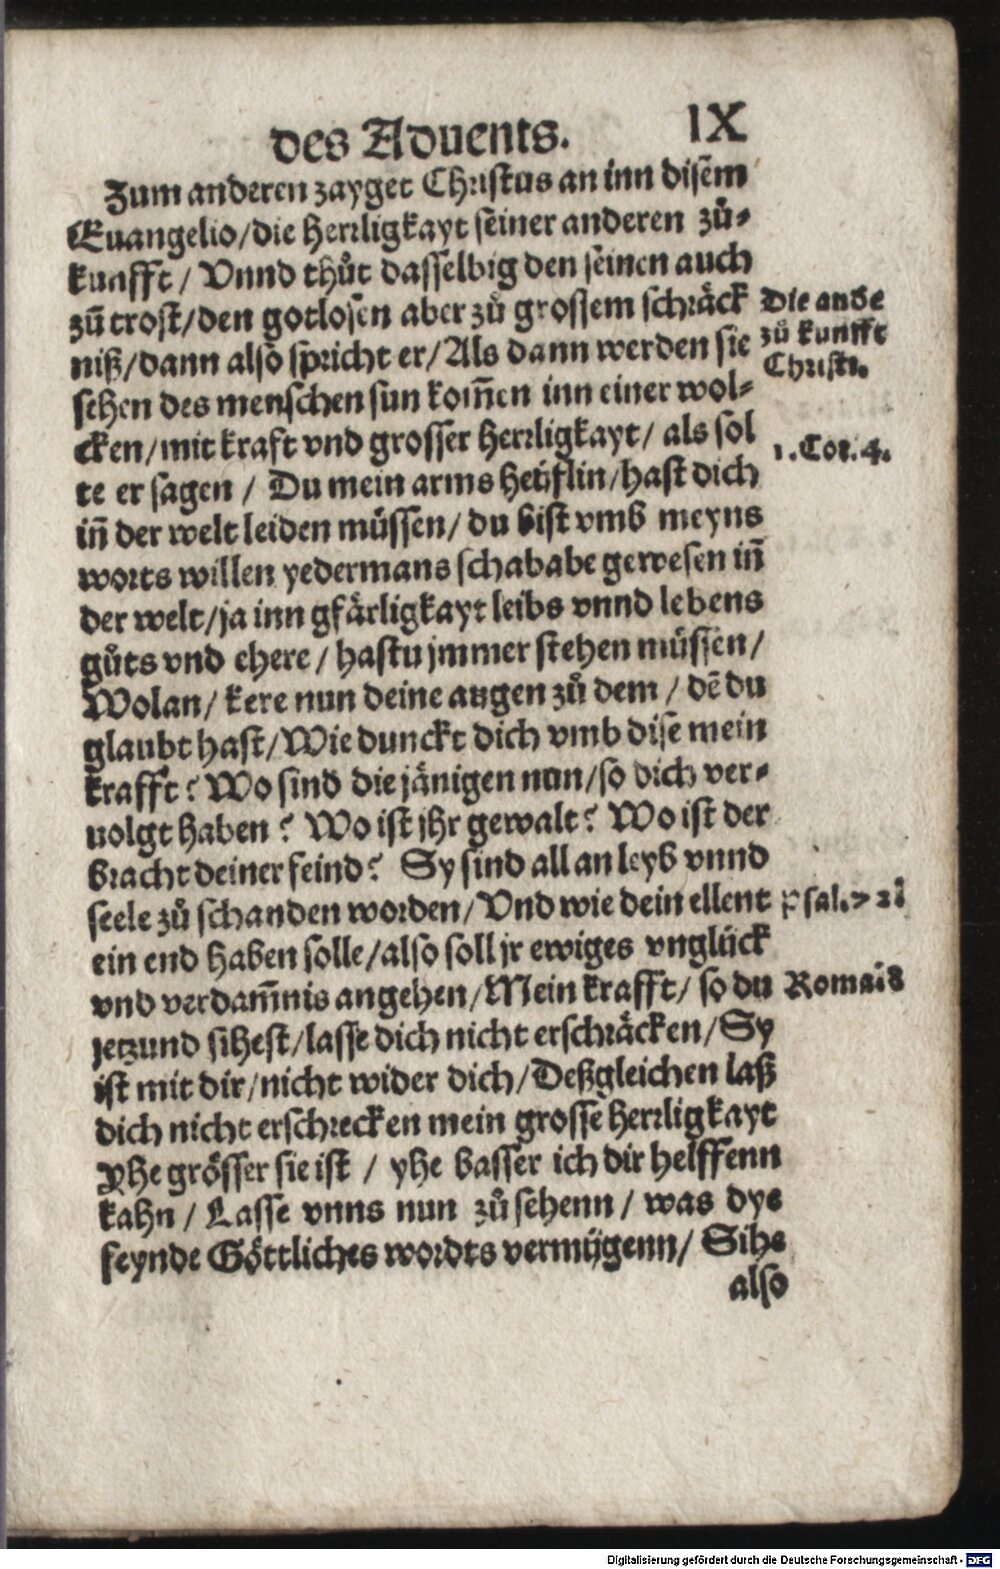 des Aduents. IX
Zum anderen zayget Christus an inn disem
Euangelio/die Herrligkayt seiner anderen zů-
kunfft/ Vnnd thůt dasselbig den seinen auch
zů trost/den gotlosen aber zů grossem schräck
niß/dann also spricht er/Als dann werden sie
sehen des menschen sun kom̃en inn einer wol-
cken/mit kraft vnd grosser Herrligkayt/ als sol
te er sagen / Du mein arms heüflin/hast dich
iñ der welt leiden müssen/ du bist vmb meyns
worts willen yedermans schababe gewesen iñ
der welt/ja inn gfärligkayt leibs vnnd lebens
gůts vnd ehere / hastu jmmer stehen müssen/
Wolan/ kere nun deine augen zů dem / dẽ du
glaubt hast/Wie dunckt dich vmb dise mein
krafft? Wo sind die jänigen nun/so dich ver-
uolgt haben? Wo ist jhr gewalt? Wo ist der
bracht deiner feind? Sy sind all an leyb vnnd
seele zů schanden worden/ Vnd wie dein ellent
ein end haben solle/also soll jr ewiges vnglück
vnd verdam̃nis angehen/Mein krafft/ so du
jetzund sihest/lasse dich nicht erschräcken/Sy
ist mit dir/nicht wider dich/Deßgleichen laß
dich nicht erschrecken mein grosse Herrligkayt
Yhe grösser sie ist / yhe basser ich dir helffenn
kahn / Lasse vnns nun zů sehenn / was dye
feynde Göttliches wordts vermügenn/ Sihe
also
Die ande
zů kunfft
Christi.
1. Cor. 4.
Psal. 72
Roma. 8
Digitalisierung gefördert durch die Deutsche Forschungsgemeinschaft - DFG